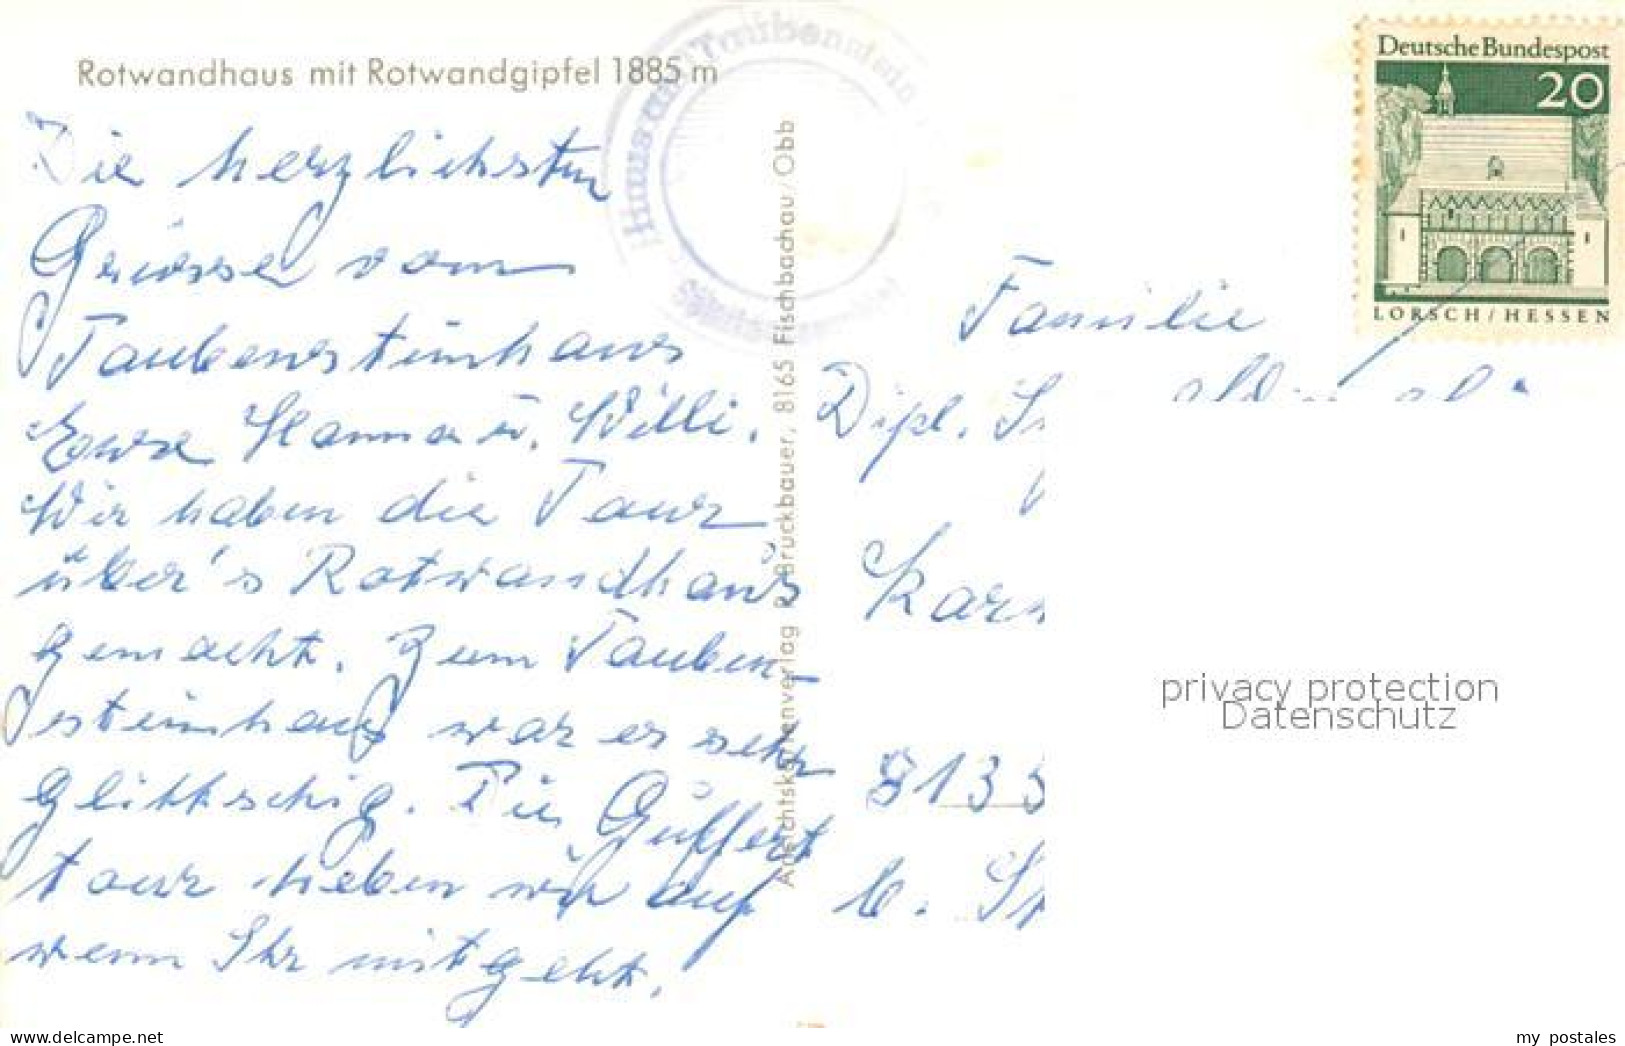 Rotwandhaus mit Rotwandgipfel 1885 m
Die herzlichsten
Grüsse vom
Taubensteinhaus
Eure Hanna u. Willi.
Wir haben die Tour
über's Rotwandhaus
gemacht. Zum Tauben-
steinhaus war es sehr
glittschig. Die Güffert
tour heben wir auf
wenn Ihr mitgeht.
Ansichtskartenverlag R. Bruckbauer, 8165 Fischbachau/Obb
Haus am Taubenstein
Deutsche Bundespost
20
LORSCH/HESSEN
Familie
Dipl.
8135
b. St
privacy protection
Datenschutz
my postales
www.delcampe.net